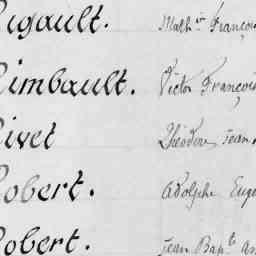 Rigault. Math.in François
Rimbault. Victor François
Rivet Théodore Jean
Robert. Adolphe Eugè
Robert. Jean Bap.te An